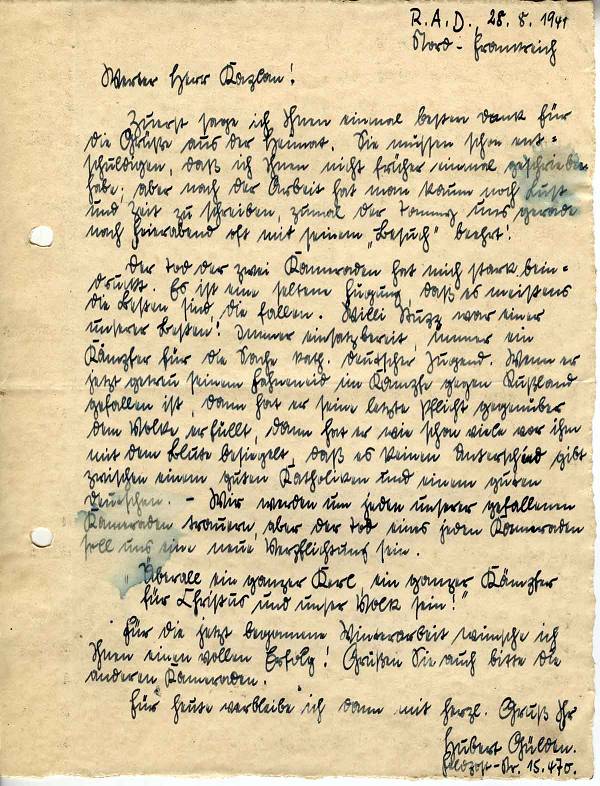 R.A.D. 28.8.1941
Nord-Frankreich
Werter Herr Kaplan!
Zuerst sage ich Ihnen einmal besten dank für
die Grüße aus der Heimat. Sie müssen schon ent-
schuldigen, daß ich Ihnen nicht früher einmal geschrieben
habe; aber nach der Arbeit hat man kaum noch Lust
und Zeit zu schreiben, zumal der Tommy uns gerade
nach Feierabend oft mit seinem „Besuch" beehrt!
Der Tod der zwei Kameraden hat mich stark bein-
druckt. Es ist eine seltene Fügung, daß es meistens
die Besten sind, die fallen. Willi war einer
unserer Besten! Immer einsatzbereit, immer ein
Kämpfer für die Sache kath. deutscher Jugend. Wenn er
jetzt getreu seinem Fahneneid im Kampfe gegen Rußland
gefallen ist, dann hat er seine letzte Pflicht gegenüber
dem Volke erfüllt, dann hat er wie schon viele vor ihm
mit dem Blute besiegelt, daß es keinen Unterschied gibt
zwischen einem guten Katholiken und einem guten
Deutschen. - Wir werden um jeden unserer gefallenen
Kameraden trauern, aber der Tod eines jeden Kameraden
soll uns eine neue Verpflichtung sein.
„Überall ein ganzer Kerl, ein ganzer Kämpfer
für Christus und unser Volk sein!"
Für die jetzt begonnene Winterarbeit wünsche ich
Ihnen einen vollen Erfolg! Grüßen Sie auch bitte die
anderen Kameraden.
Für heute verbleibe ich dann mit herzl. Gruß Ihr
Hubert Gülden.
Feldpost-Nr. 15.470.